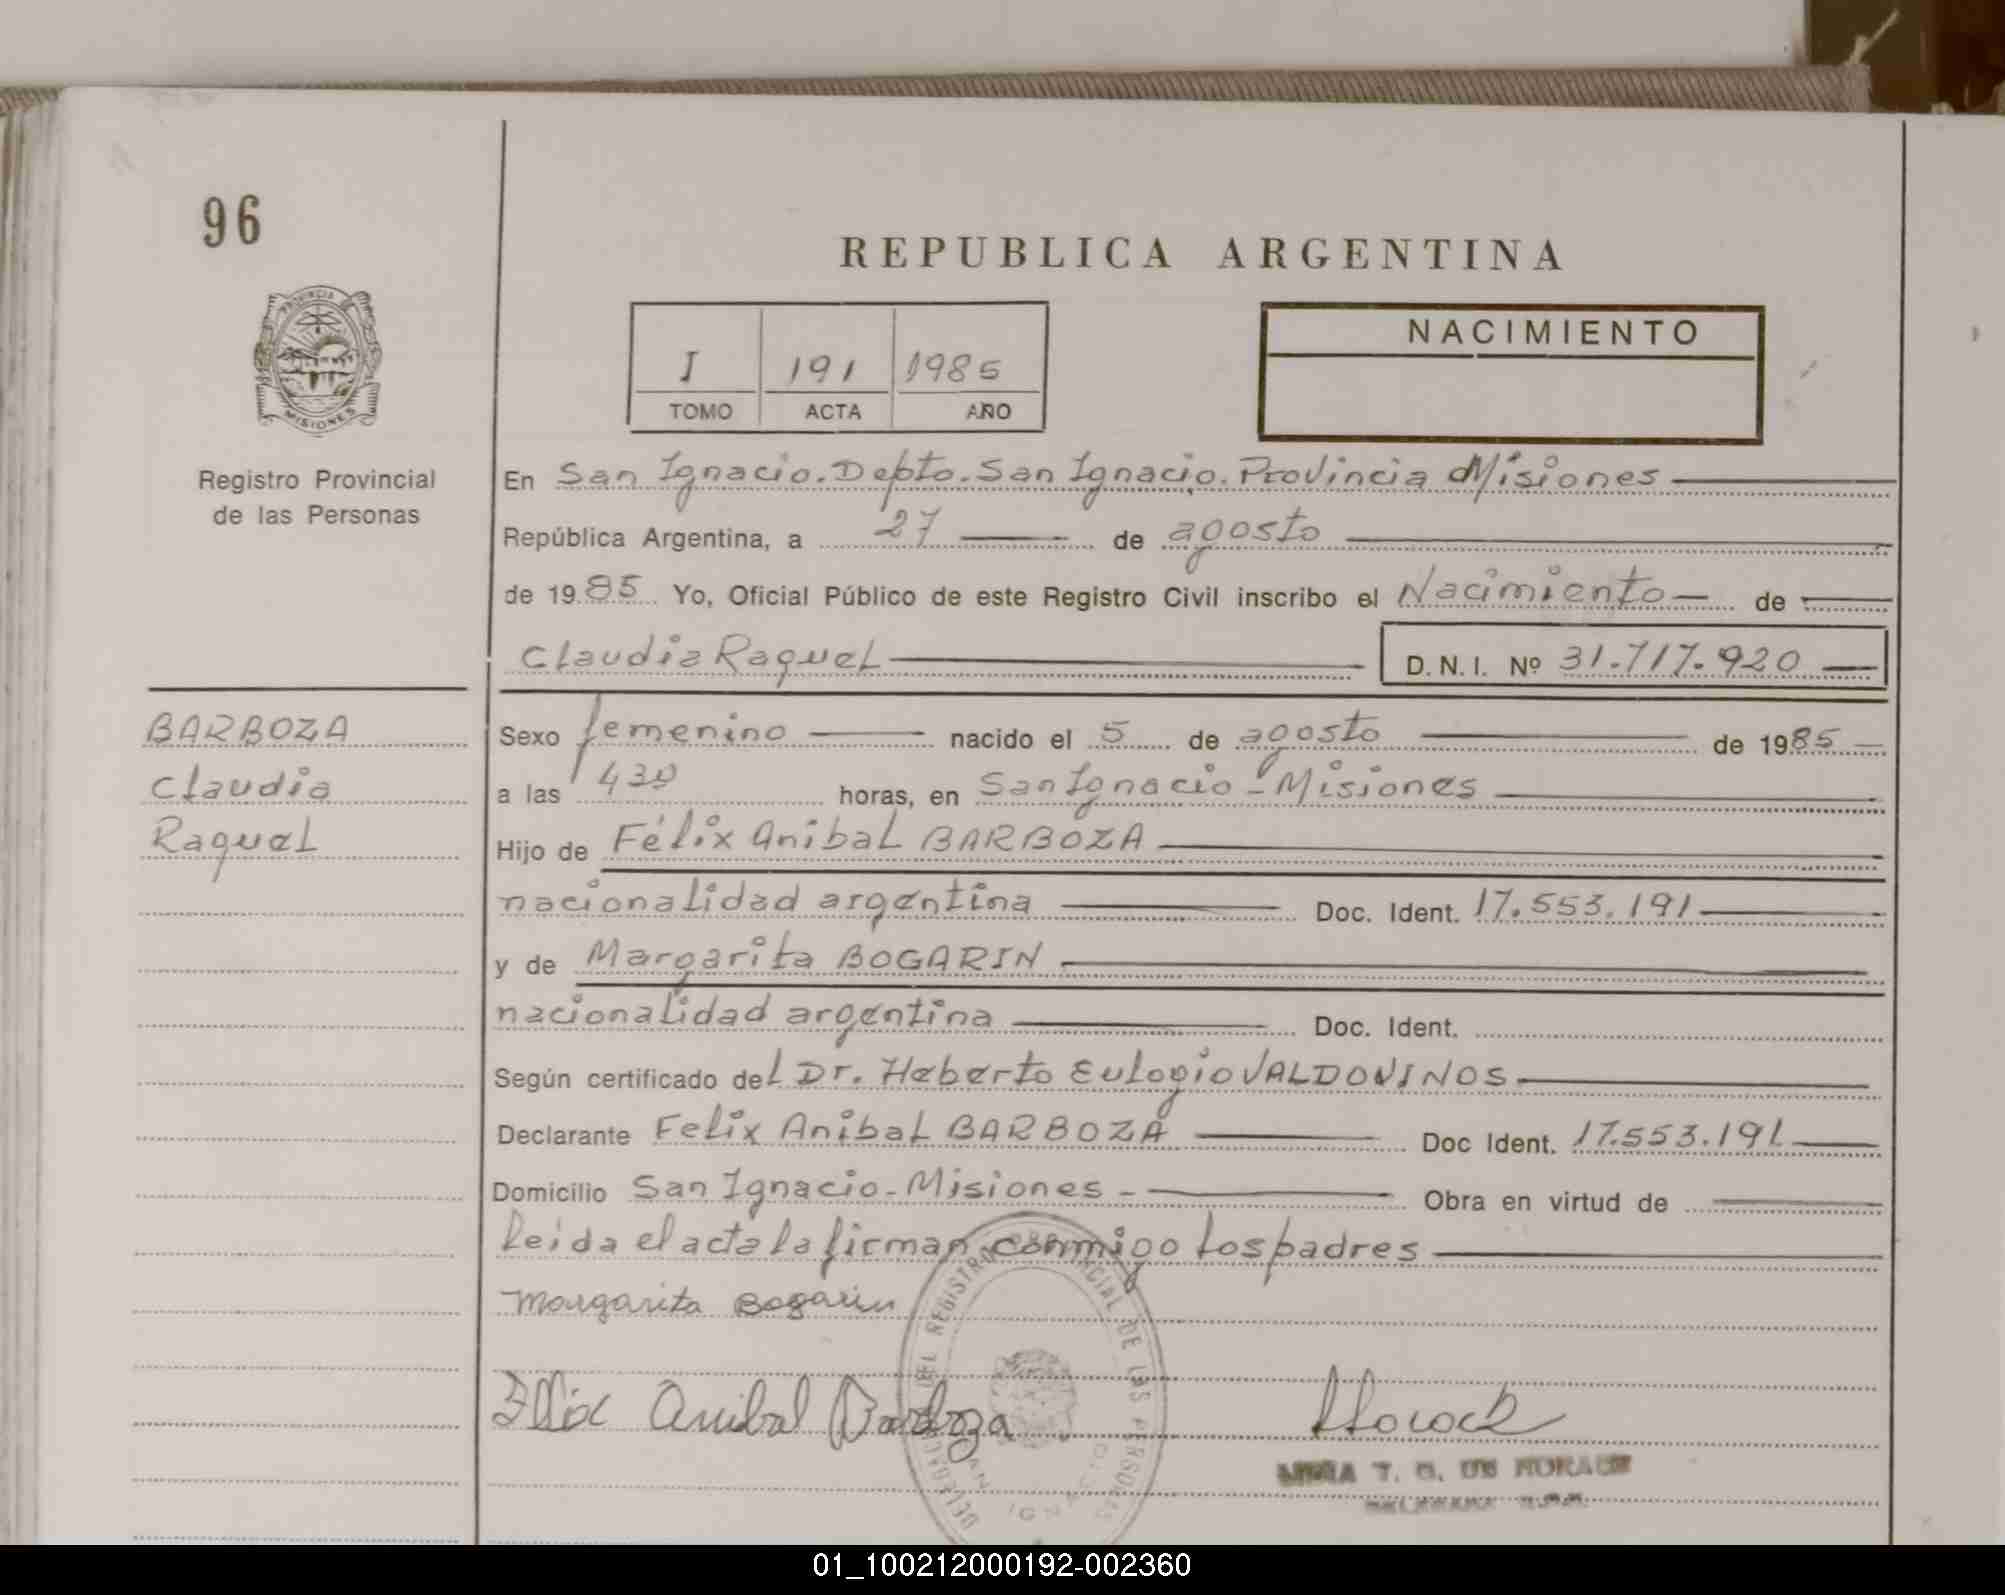 96
REPUBLICA ARGENTINA
PROVINCIA
MISIONES
Registro Provincial
de las Personas
I 191 1985
TOMO ACTA AÑO
NACIMIENTO
En San Ignacio. Depto. San Ignacio. Provincia Misiones
República Argentina, a 27 de agosto
de 1985 Yo, Oficial Público de este Registro Civil inscribo el Nacimiento de
Claudia Raquel D.N.I. Nº 31.717.920
BARBOZA
Claudia
Raquel
Sexo femenino nacido el 5 de agosto de 1985
a las 430 horas, en San Ignacio - Misiones
Hijo de Félix Anibal BARBOZA
nacionalidad argentina Doc. Ident. 17.553.191
y de Margarita BOGARIN
nacionalidad argentina Doc. Ident.
Según certificado del Dr. Heberto Eulogio VALDOVINOS
Declarante Felix Anibal BARBOZA Doc Ident. 17.553.191
Domicilio San Ignacio - Misiones - Obra en virtud de
leida el acta la firman conmigo los padres
Margarita Bogarin
Felix Anibal Barboza
DEL REGISTRO PROVINCIAL DE LAS PERSONAS
01_100212000192-002360